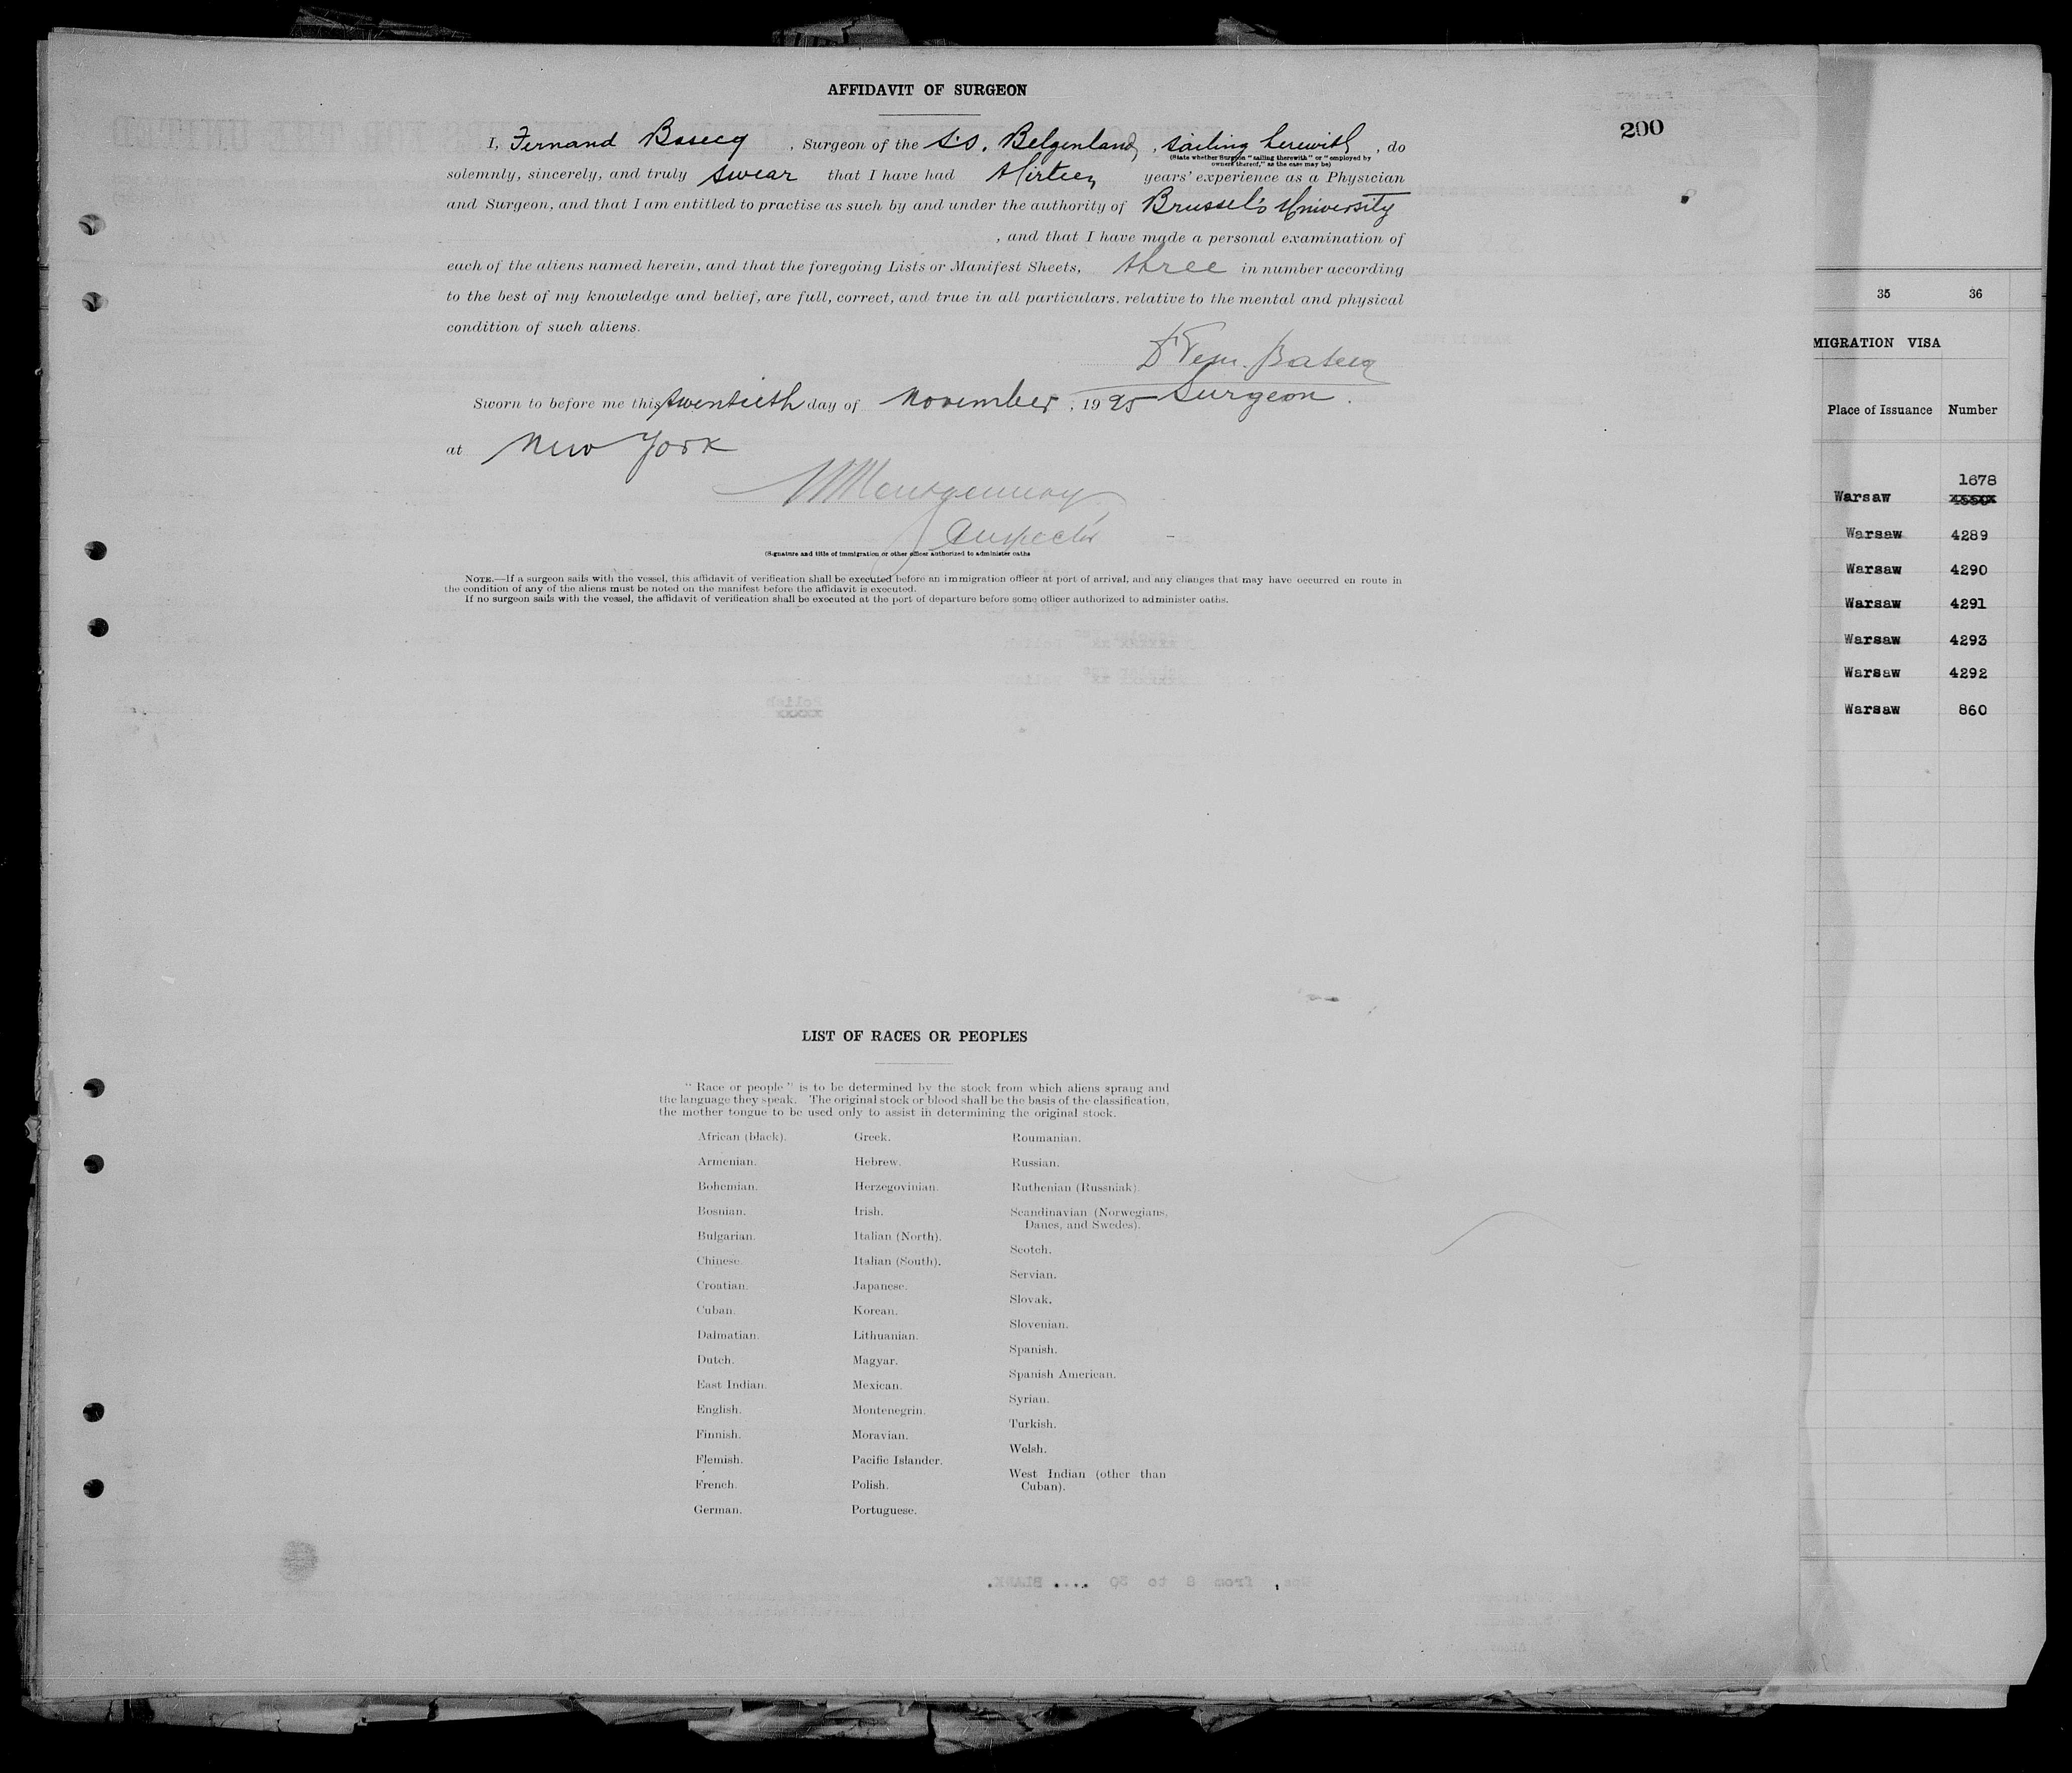 AFFIDAVIT OF SURGEON
200
I, Fernand Basecq, Surgeon of the S.S. Belgenland, sailing herewith, do
(State whether Surgeon "sailing therewith" or "employed by
owners thereof," as the case may be)
solemnly, sincerely, and truly swear that I have had thirteen years' experience as a Physician
and Surgeon, and that I am entitled to practise as such by and under the authority of Brussel's University
, and that I have made a personal examination of
each of the aliens named herein, and that the foregoing Lists or Manifest Sheets, three in number according
to the best of my knowledge and belief, are full, correct, and true in all particulars, relative to the mental and physical
condition of such aliens.
Dr Fern. Basecq
Surgeon.
Sworn to before me this twentieth day of November, 1925
at New York
Montgomery
Inspector
(Signature and title of immigration or other officer authorized to administer oaths
NOTE.—If a surgeon sails with the vessel, this affidavit of verification shall be executed before an immigration officer at port of arrival, and any changes that may have occurred en route in
the condition of any of the aliens must be noted on the manifest before the affidavit is executed.
If no surgeon sails with the vessel, the affidavit of verification shall be executed at the port of departure before some officer authorized to administer oaths.
LIST OF RACES OR PEOPLES
"Race or people" is to be determined by the stock from which aliens sprang and
the language they speak. The original stock or blood shall be the basis of the classification,
the mother tongue to be used only to assist in determining the original stock.
African (black).
Armenian.
Bohemian.
Bosnian.
Bulgarian.
Chinese.
Croatian.
Cuban.
Dalmatian.
Dutch.
East Indian.
English.
Finnish.
Flemish.
French.
German.
Greek.
Hebrew.
Herzegovinian.
Irish.
Italian (North).
Italian (South).
Japanese.
Korean.
Lithuanian.
Magyar.
Mexican.
Montenegrin.
Moravian.
Pacific Islander.
Polish.
Portuguese.
Roumanian.
Russian.
Ruthenian (Russniak).
Scandinavian (Norwegians,
Danes, and Swedes).
Scotch.
Servian.
Slovak.
Slovenian.
Spanish.
Spanish American.
Syrian.
Turkish.
Welsh.
West Indian (other than
Cuban).
35 36
MIGRATION VISA
Place of Issuance Number
1678
Warsaw
Warsaw 4289
Warsaw 4290
Warsaw 4291
Warsaw 4293
Warsaw 4292
Warsaw 860